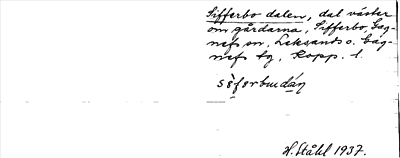 Sifferbo dalen, dal väster
om gårdarna, Sifferbo, Gag-
nefs sn, Leksands o. Gag-
nefs tg, Kopp. l.
sèferbudáŋ
H. Ståhl 1937.